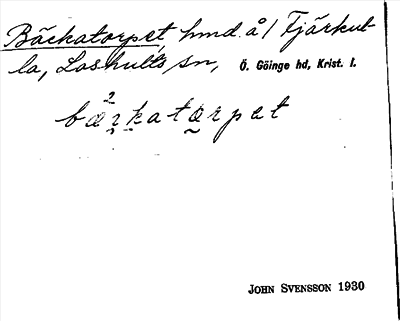 Bäckatorpet, hmd. å / Tjärkul-
la, Loshults sn, Ö. Göinge hd, Krist. l.
JOHN SVENSSON 1930